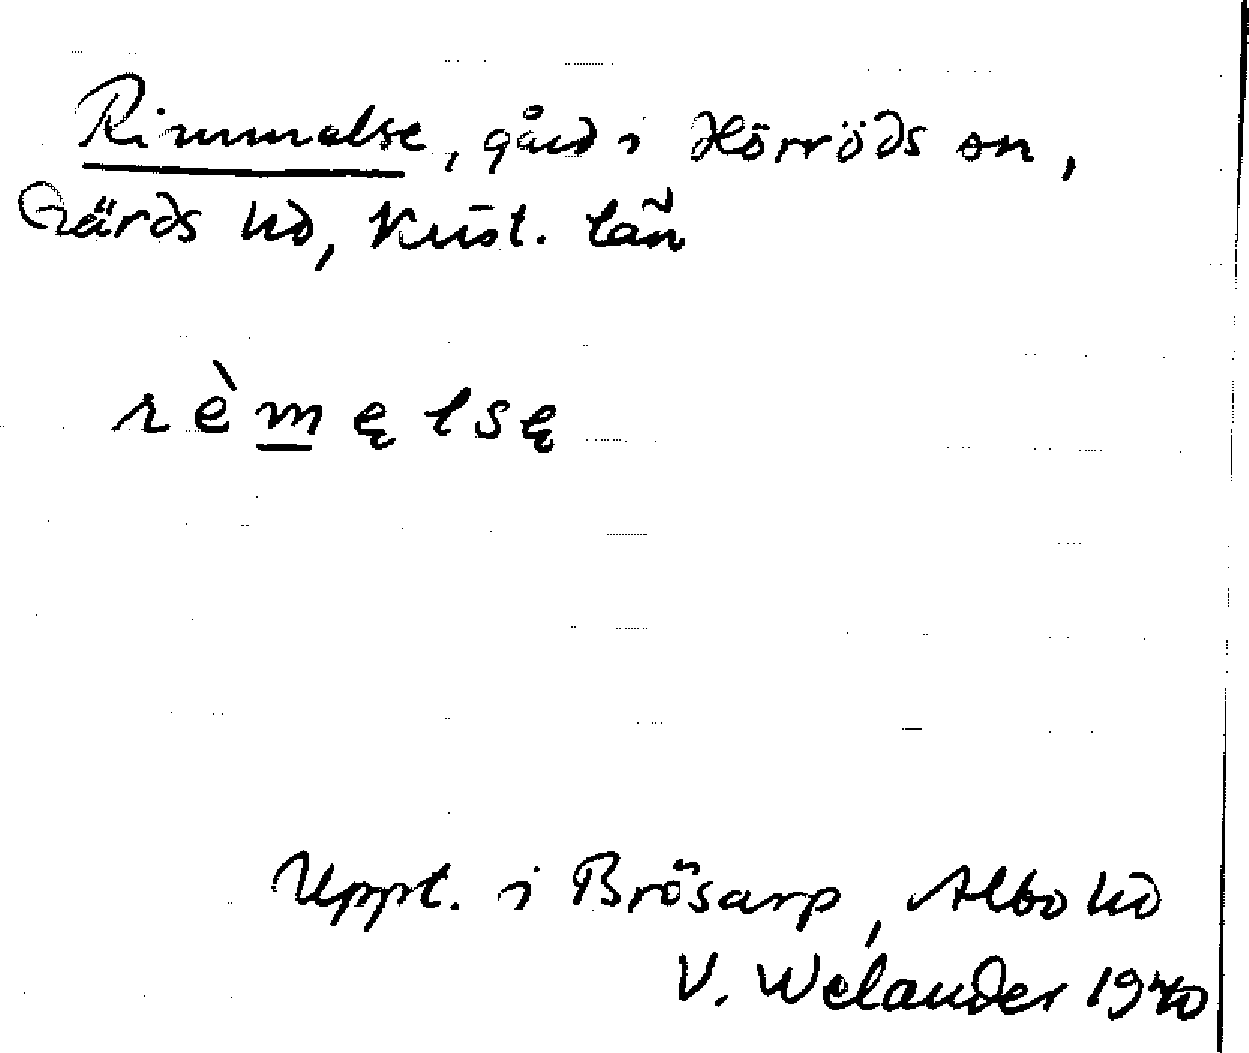 Rimmelse, gård i Hörröds sn,
Gärds hd, Krist. län
rèmęlsę
Uppt. i Brösarp, Albo hd
V. Welander 1940